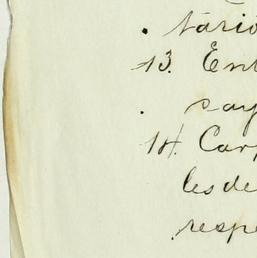 . tario
13. Ent
. say
14. Carp
les de
respe